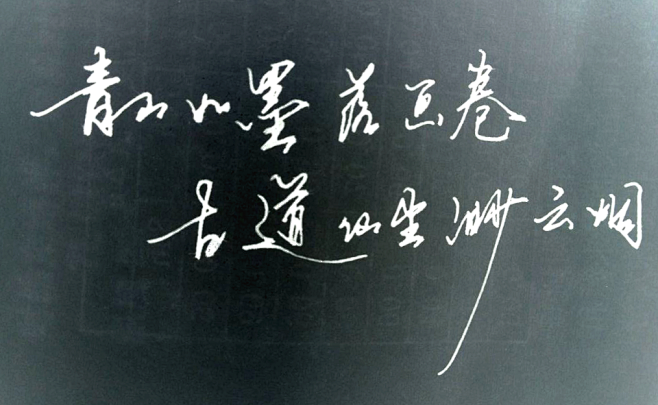 青山如墨落画卷
古道仙尘渺云烟